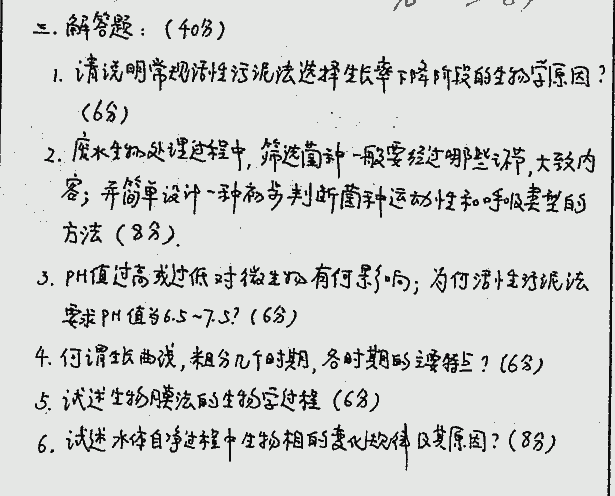 三. 解答题：（40分）
1. 请说明常规活性污泥法选择生长率下降阶段的生物学原因？
（6分）
2. 废水生物处理过程中, 筛选菌种一般要经过哪些环节, 大致内
容; 并简单设计一种初步判断菌种运动性和呼吸类型的
方法（8分）.
3. PH值过高或过低对微生物有何影响; 为何活性污泥法
要求PH值为6.5~7.5?（6分）
4. 何谓生长曲线, 粗分几个时期, 各时期的主要特点？（6分）
5. 试述生物膜法的生物学过程（6分）
6. 试述水体自净过程中生物相的变化规律及其原因？（8分）